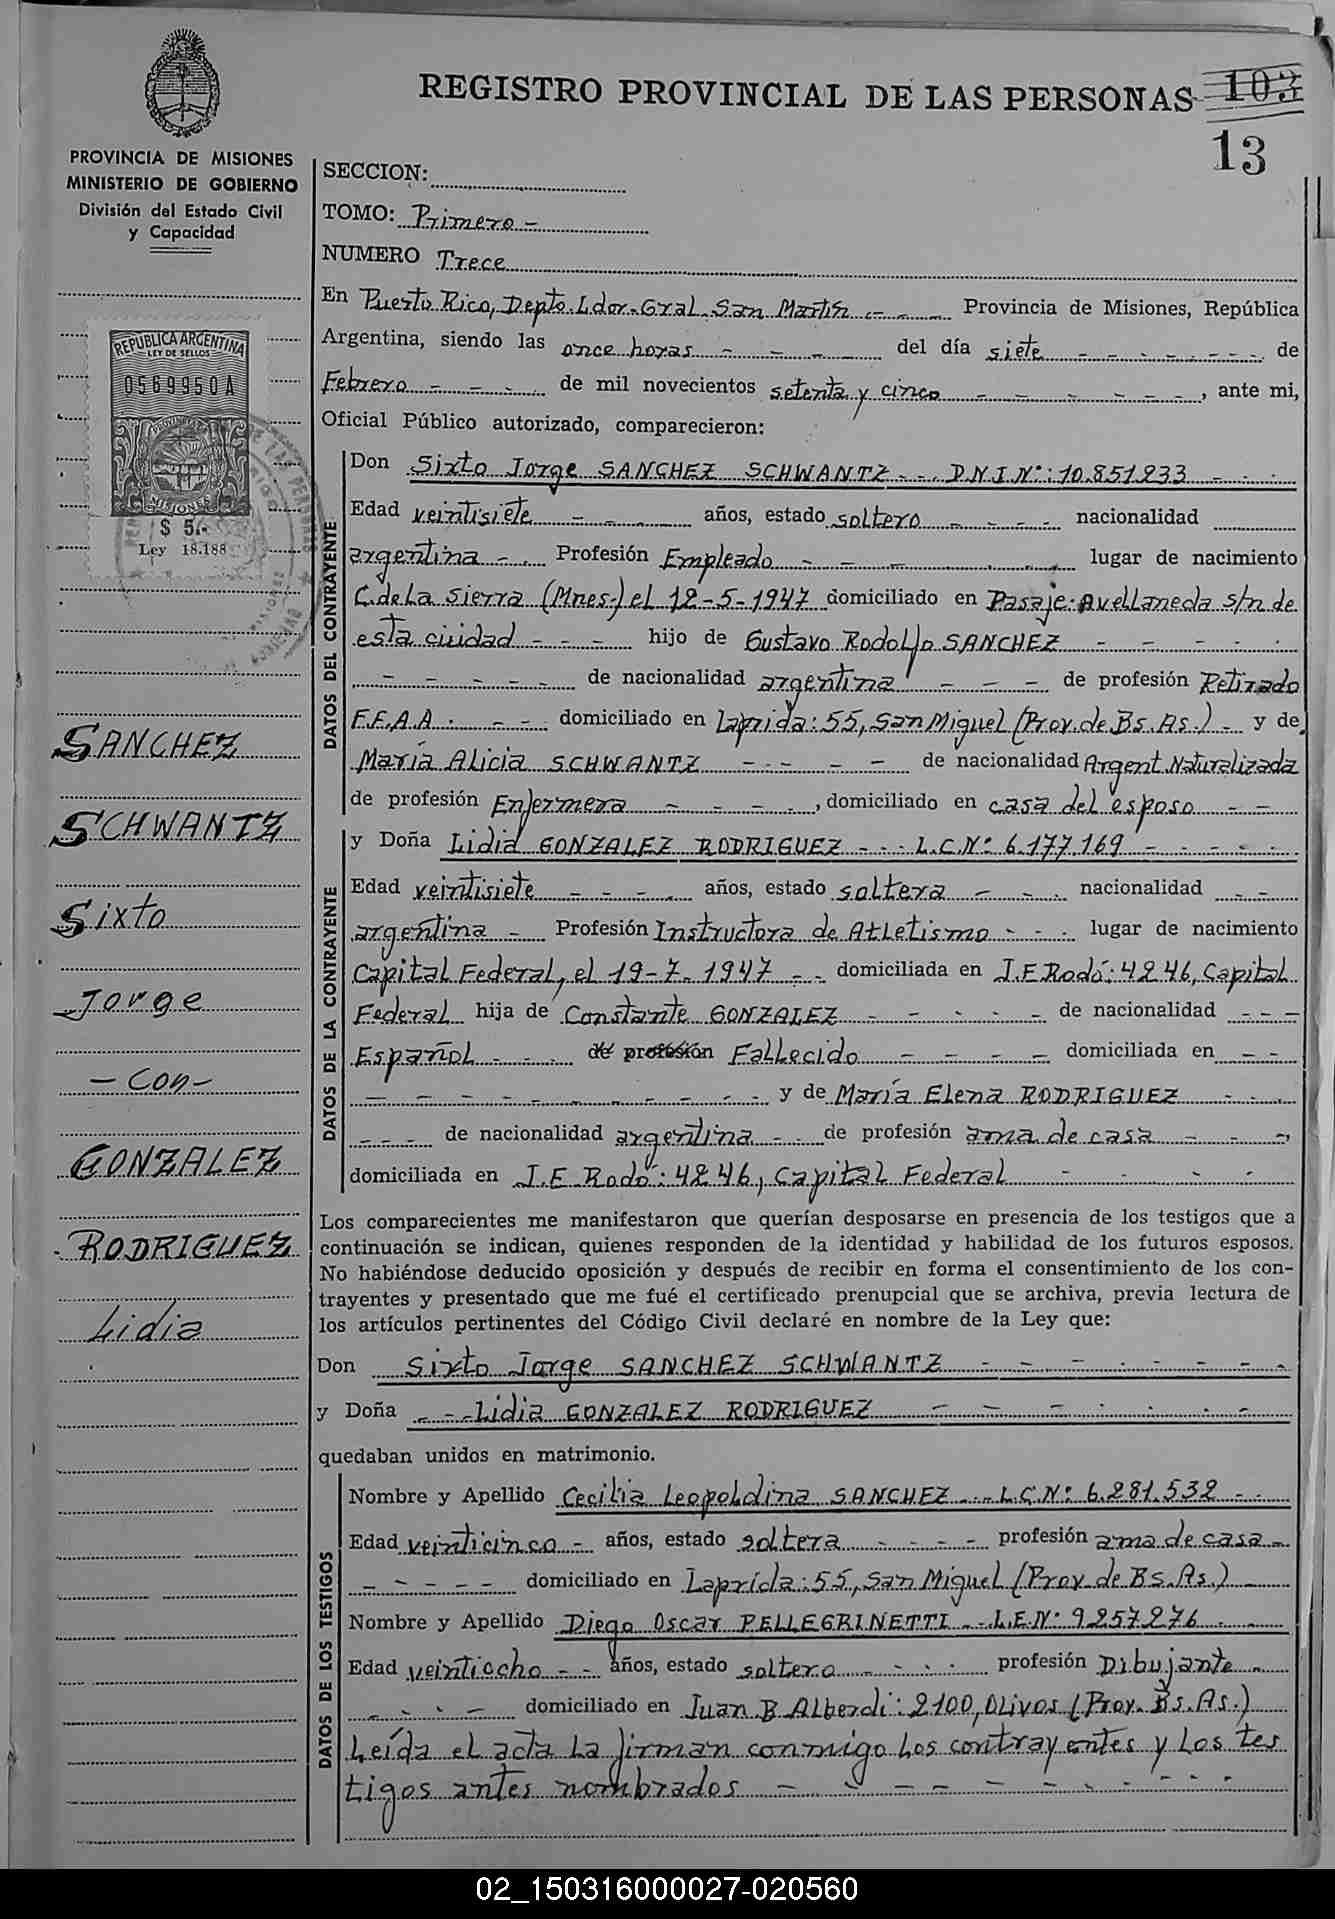 REGISTRO PROVINCIAL DE LAS PERSONAS 103
13
PROVINCIA DE MISIONES
MINISTERIO DE GOBIERNO
División del Estado Civil
y Capacidad
REPUBLICA ARGENTINA
LEY DE SELLOS
0569950A
MISIONES
$ 5.-
Ley 18.188
SANCHEZ
SCHWANTZ
Sixto
Jorge
- Con -
GONZALEZ
RODRIGUEZ
Lidia
SECCION:
TOMO: Primero -
NUMERO Trece
En Puerto Rico, Depto. Ldor. Gral. San Martín - - - - Provincia de Misiones, República
Argentina, siendo las once horas - - - - del día siete - - - - - - de
Febrero - - - - de mil novecientos setenta y cinco - - - - - -, ante mi,
Oficial Público autorizado, comparecieron:
DATOS DEL CONTRAYENTE
Don Sixto Jorge SANCHEZ SCHWANTZ - - D.N.I.N°: 10.851.233 - - -
Edad veintisiete - - - - años, estado soltero - - - - nacionalidad
argentina - - Profesión Empleado - - - - - - lugar de nacimiento
C. de La Sierra (Mnes.) el 12-5-1947 domiciliado en Pasaje: Avellaneda s/n de
esta ciudad - - - - hijo de Gustavo Rodolfo SANCHEZ - - - - -
- - - - - - de nacionalidad argentina - - - de profesión Retirado
F.F.A.A. - - - domiciliado en Laprida: 55, San Miguel (Prov. de Bs. As.) - y de
María Alicia SCHWANTZ - - - - - de nacionalidad Argent. Naturalizada
de profesión Enfermera - - - - , domiciliado en casa del esposo - -
DATOS DE LA CONTRAYENTE
y Doña Lidia GONZALEZ RODRIGUEZ - - - L.C.N° 6.177.169 - - - - -
Edad veintisiete - - - - años, estado soltera - - - nacionalidad - -
argentina - Profesión Instructora de Atletismo - - - lugar de nacimiento
Capital Federal, el 19-7-1947 - - domiciliada en J.E. Rodó: 4246, Capital
Federal hija de Constante GONZALEZ - - - - - de nacionalidad - - -
Español - - - de profesión Fallecido - - - - domiciliada en - -
- - - - - - - - - - y de María Elena RODRIGUEZ - - -
- - - de nacionalidad argentina - - de profesión ama de casa - - -,
domiciliada en J.E. Rodó: 4246, Capital Federal - - - -
Los comparecientes me manifestaron que querían desposarse en presencia de los testigos que a
continuación se indican, quienes responden de la identidad y habilidad de los futuros esposos.
No habiéndose deducido oposición y después de recibir en forma el consentimiento de los con-
trayentes y presentado que me fué el certificado prenupcial que se archiva, previa lectura de
los artículos pertinentes del Código Civil declaré en nombre de la Ley que:
Don Sixto Jorge SANCHEZ SCHWANTZ - - - - - - - -
y Doña - - - Lidia GONZALEZ RODRIGUEZ - - - - - - -
quedaban unidos en matrimonio.
DATOS DE LOS TESTIGOS
Nombre y Apellido Cecilia Leopoldina SANCHEZ - - - L.C.N° 6.281.532 - -
Edad veinticinco - años, estado soltera - - - - profesión ama de casa -
- - - - - domiciliado en Laprida: 55, San Miguel (Prov. de Bs. As.) -
Nombre y Apellido Diego Oscar PELLEGRINETTI - - L.E.N° 9257276 - - -
Edad veintiocho - - años, estado soltero - - - - profesión Dibujante -
- - - - domiciliado en Juan B. Alberdi: 2100, Olivos (Prov. Bs. As.)
Leída el acta la firman conmigo los contrayentes y los tes
tigos antes nombrados - - - - - - - - - -
02_150316000027-020560